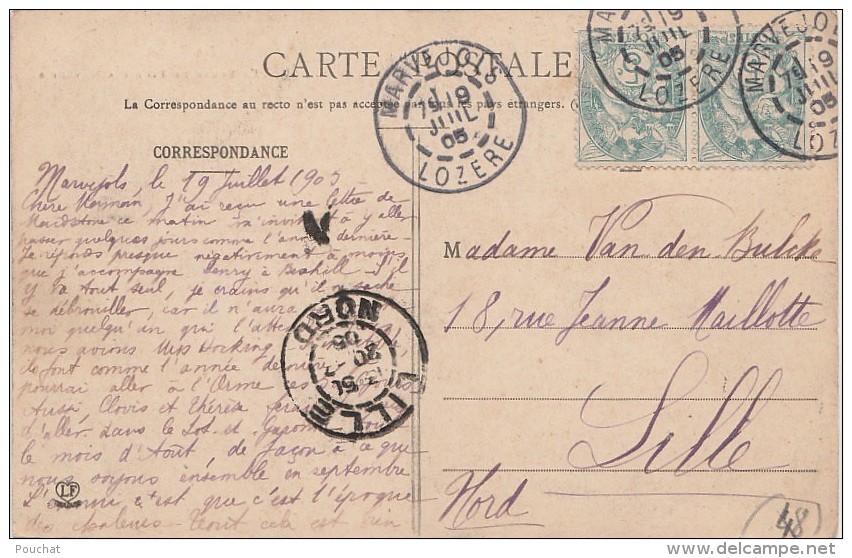 CARTE POSTALE
La Correspondance au recto n'est pas acceptée par tous les pays étrangers.
CORRESPONDANCE
MARVEJOLS
19
JUIL
05
LOZERE
MARVEJOLS
19
JUIL
05
LOZERE
MARVEJOLS
19
JUIL
05
LOZERE
Marvejols, le 19 Juillet 1905
Chère Maman, J'ai reçu une lettre de
Maidstone ce matin m'invitant à y aller
passer quelques jours comme l'année dernière.
Je réponds presque négativement à moins
que j'accompagne Henry à Bexhill. S'il
y va tout seul, je crains qu'il ne sache
se débrouiller, car il n'aura
moi quelqu'un qui l'
nous avions Miss Hocking. Si
ils font comme l'année dernière
pourrai aller à l'Orme
Aussi Clovis et Thérèse
d'aller dans le Lot et Garonne
le mois d'Août, de façon à ce que
nous soyons ensemble en septembre
L'ennui c'est que c'est l'époque
des chaleurs. Tout cela est bien
LILLE
20
05
NORD
Madame Van den Bulck
18, rue Jeanne Maillotte
Lille
Nord
(48)
LF
© Pouchat
delcampe.net